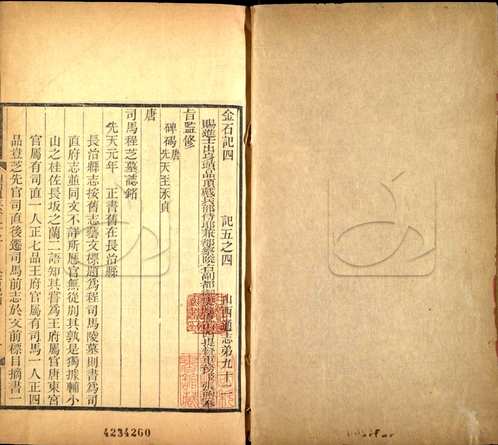 金石記四　記五之四　山西通志弟九十二
賜進士出身頭品頂戴兵部侍郎
旨監修
唐
碑碣唐先天至永貞
司馬程芝墓誌銘
先天元年　正書舊在長治縣
長治縣志按舊志藝文標題為程司馬陵墓則書為司
直府志並同文不詳所歷官無從別其孰是獨據輔小
山之桂佐長坂之蘭二語知其嘗為王府屬官唐東宮
官屬有司直一人正七品王府官屬有司馬一人正四
品豈芝先官司直後遷司馬前志於文前標目摘書一
4234260